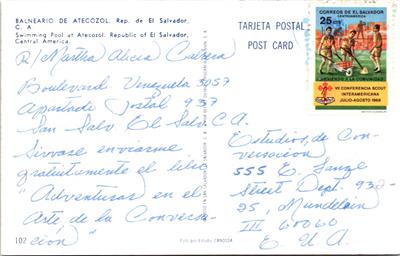 BALNEARIO DE ATECOZOL, Rep. de El Salvador,
C. A.
Swimming Pool at Atecozol. Republic of El Salvador,
Central America.
R/ Martha Alicia Cabrera
Boulevard Venezuela 3057
Apartado Postal 937
San Salv. El Salv. C.A.
Sirvase enviarme
gratuitamente el libro
"Adventuras en el
Arte de la Conversa-
ción"
102
TARJETA POSTAL
POST CARD
CORREOS DE EL SALVADOR
CENTROAMERICA
25
SIRVIENDO A LA COMUNIDAD
VII CONFERENCIA SCOUT
INTERAMERICANA
JULIO-AGOSTO 1968
Estudios de Con-
versacion
555 E. Lange
Street Dept. 932-
25, Mundelein
Ill 60060
E. U. A.